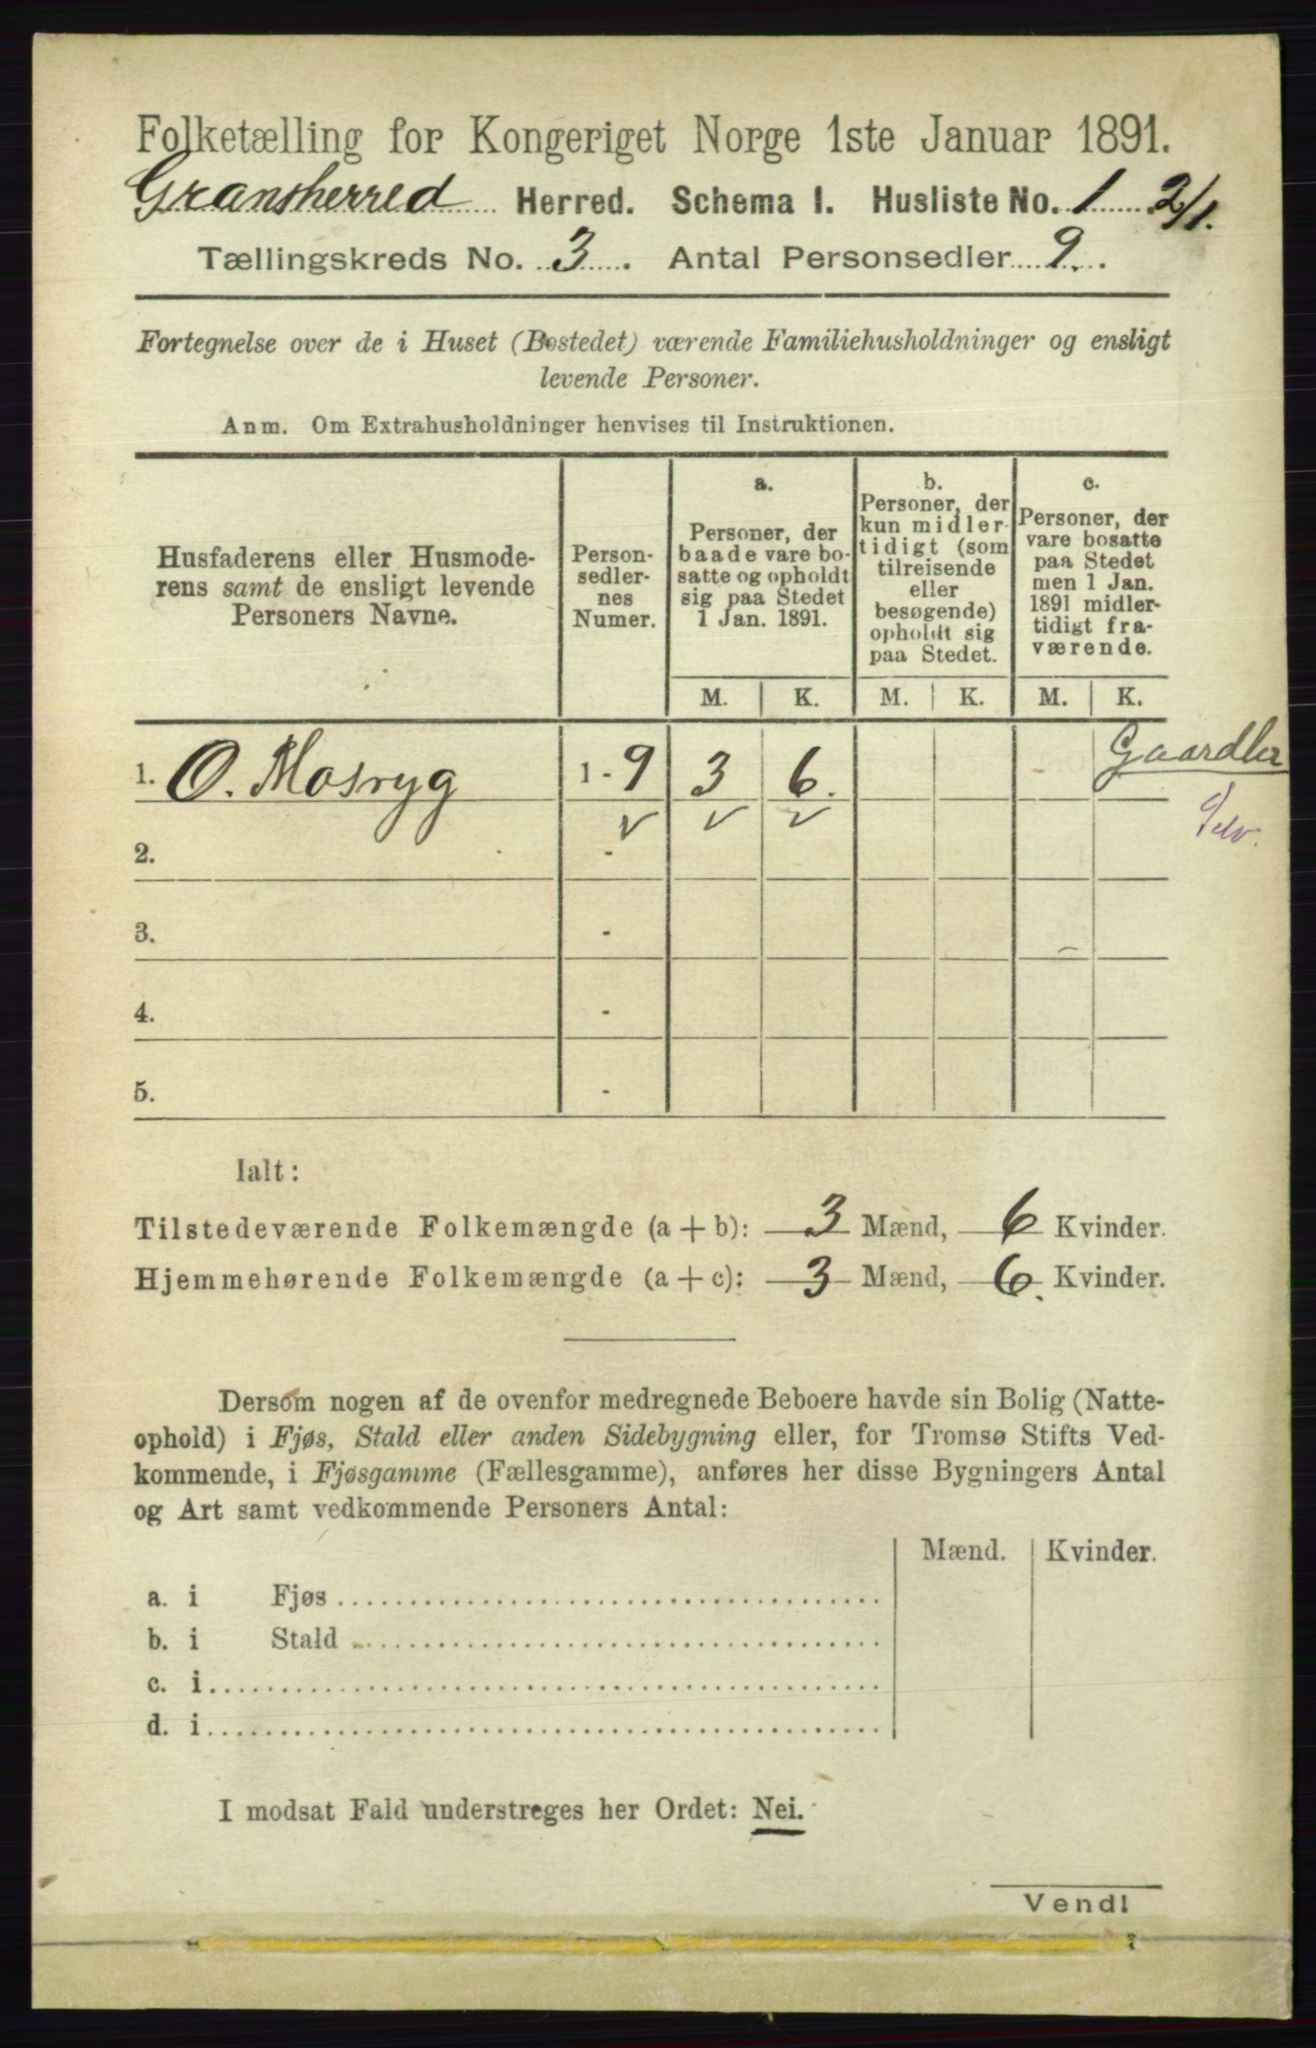 Folketælling for Kongeriget Norge 1ste Januar 1891.
Gransherred Herred. Schema I. Husliste No. 1 2/1.
Tællingskreds No. 3. Antal Personsedler 9.
Fortegnelse over de i Huset (Bostedet) værende Familiehusholdninger og ensligt
levende Personer.
Anm. Om Extrahusholdninger henvises til Instruktionen.
Husfaderens eller Husmode-
rens samt de ensligt levende
Personers Navne.
Person-
sedler-
nes
Numer.
a.
Personer, der
baade vare bo-
satte og opholdt
sig paa Stedet
1 Jan. 1891.
b.
Personer, der
kun midler-
tidigt (som
tilreisende
eller
besøgende)
opholdt sig
paa Stedet.
c.
Personer, der
vare bosatte
paa Stedet
men 1 Jan.
1891 midler-
tidigt fra-
værende.
M. K. M. K. M. K.
1. O. Mosryg 1-9 3 6. Gaardbr
2. -
3. -
4. -
5. -
Ialt:
Tilstedeværende Folkemængde (a + b): 3 Mænd, 6 Kvinder.
Hjemmehørende Folkemængde (a + c): 3 Mænd, 6. Kvinder.
Dersom nogen af de ovenfor medregnede Beboere havde sin Bolig (Natte-
ophold) i Fjøs, Stald eller anden Sidebygning eller, for Tromsø Stifts Ved-
kommende, i Fjøsgamme (Fællesgamme), anføres her disse Bygningers Antal
og Art samt vedkommende Personers Antal:
Mænd. Kvinder.
a. i Fjøs
b. i Stald
c. i
d. i
I modsat Fald understreges her Ordet: Nei.
Vend!